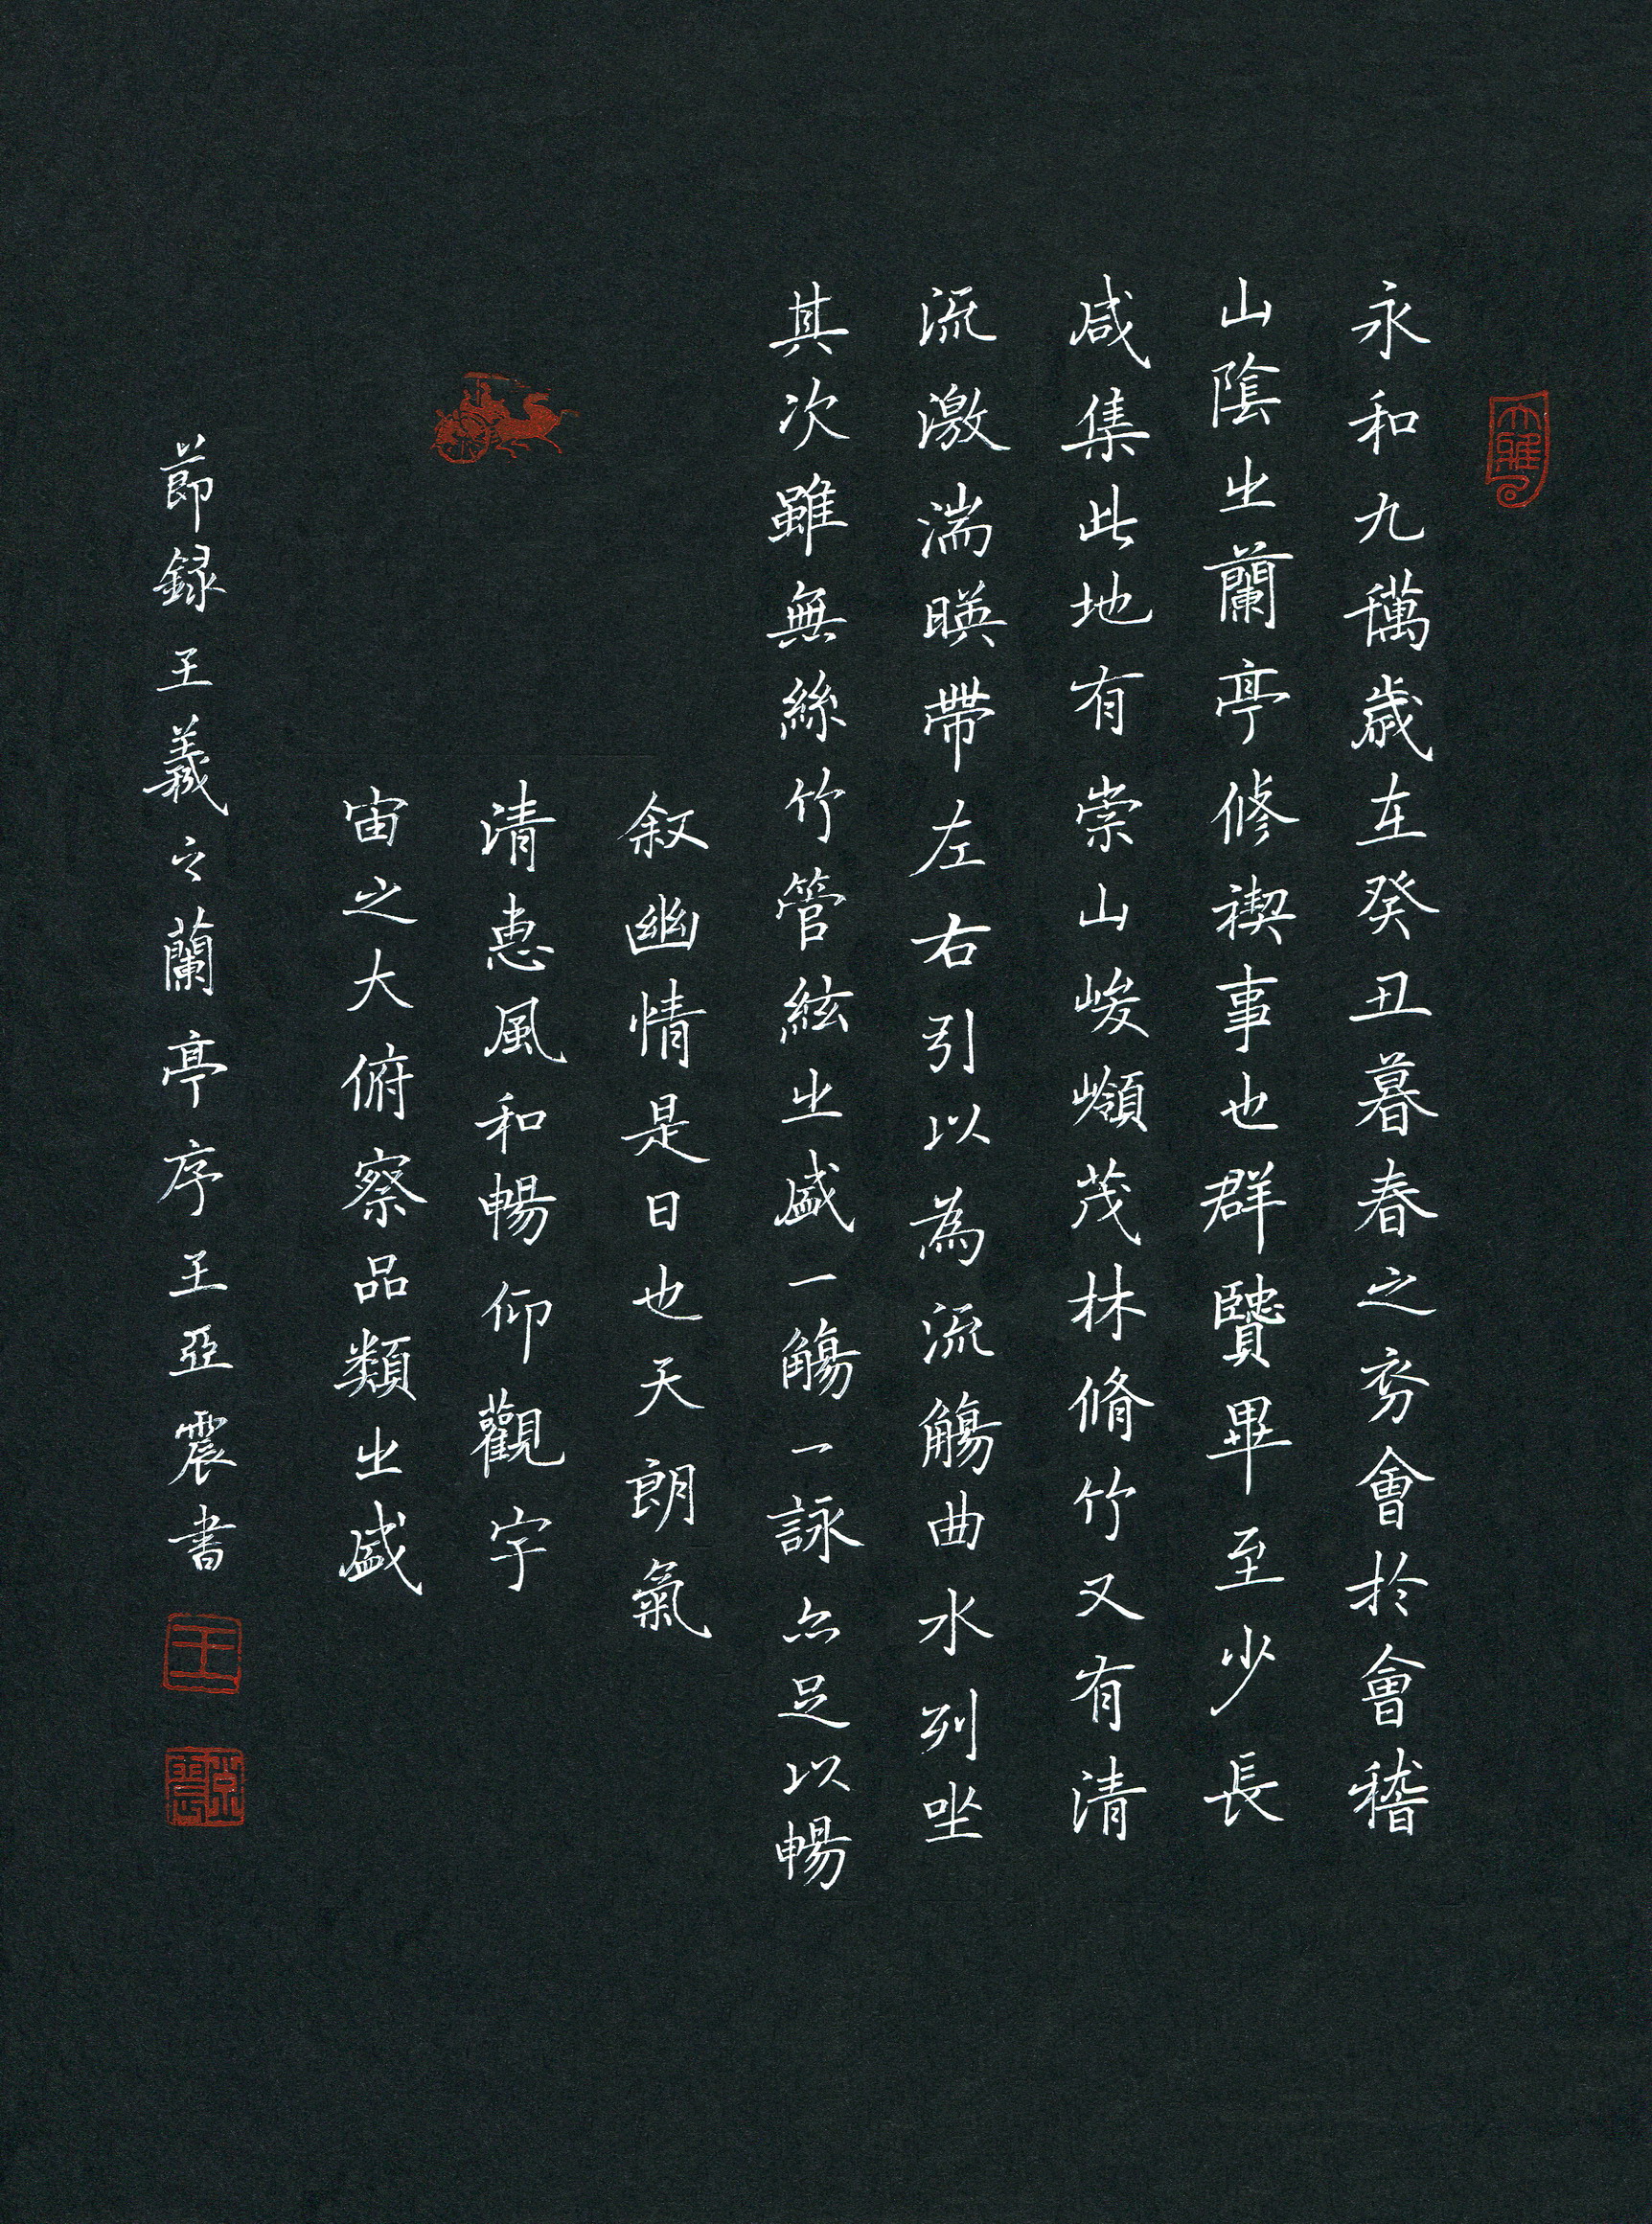 大雅
永和九穤歲在癸丑暮春之初會於會稽
山陰之蘭亭修禊事也群賢畢至少長
咸集此地有崇山峻嶺茂林脩竹又有清
流激湍暎帶左右引以為流觴曲水列坐
其次雖無絲竹管絃之盛一觴一詠亦足以暢
叙幽情是日也天朗氣
清惠風和暢仰觀宇
宙之大俯察品類之盛
節録王羲之蘭亭序王亞震書
王
亞震